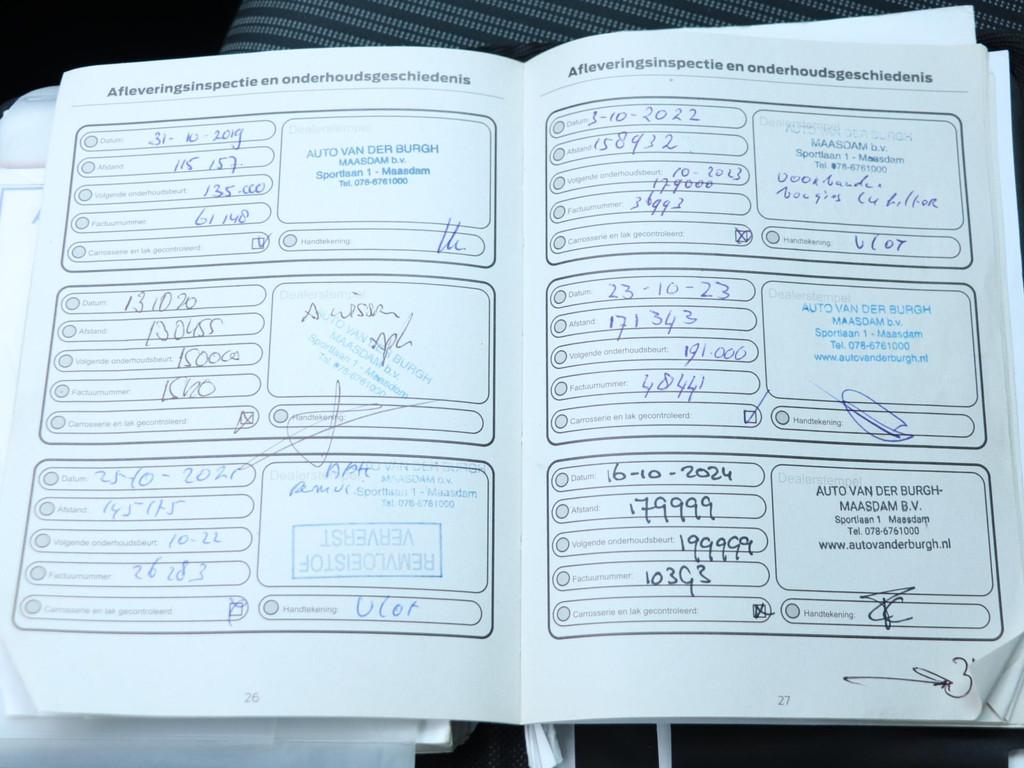 Afleveringsinspectie en onderhoudsgeschiedenis
Datum: 31-10-2019
Afstand: 115 157
Volgende onderhoudsbeurt: 135.000
Factuurnummer: 61148
Carrosserie en lak gecontroleerd:
Dealerstempel
AUTO VAN DER BURGH
MAASDAM b.v.
Sportlaan 1 - Maasdam
Tel. 078-6761000
Handtekening:
Datum: 131020
Afstand: 130455
Volgende onderhoudsbeurt: 150000
Factuurnummer:
Carrosserie en lak gecontroleerd:
Dealerstempel
AUTO VAN DER BURGH
MAASDAM b.v.
Sportlaan 1 - Maasdam
Tel. 078-6761000
Handtekening:
Datum: 25-10-2021
Afstand: 145-175
Volgende onderhoudsbeurt: 10-22
Factuurnummer: 26283
Carrosserie en lak gecontroleerd:
Dealerstempel
APK
AUTO VAN DER BURGH
MAASDAM b.v.
Sportlaan 1 - Maasdam
Tel. 078-6761000
REMVLOEISTOF
VERVERST
Handtekening: Vlot
26
Afleveringsinspectie en onderhoudsgeschiedenis
Datum: 3-10-2022
Afstand: 158932
Volgende onderhoudsbeurt: 10-2023
179000
Factuurnummer: 36993
Carrosserie en lak gecontroleerd:
Dealerstempel
AUTO VAN DER BURGH
MAASDAM b.v.
Sportlaan 1 - Maasdam
Tel. 078-6761000
Handtekening: Vlot
Datum: 23-10-23
Afstand: 171 343
Volgende onderhoudsbeurt: 191.000
Factuurnummer: 48441
Carrosserie en lak gecontroleerd:
Dealerstempel
AUTO VAN DER BURGH
MAASDAM b.v.
Sportlaan 1 - Maasdam
Tel. 078-6761000
www.autovanderburgh.nl
Handtekening:
Datum: 16-10-2024
Afstand: 179999
Volgende onderhoudsbeurt: 199999
Factuurnummer: 10393
Carrosserie en lak gecontroleerd:
Dealerstempel
AUTO VAN DER BURGH-
MAASDAM B.V.
Sportlaan 1 Maasdam
Tel. 078-6761000
www.autovanderburgh.nl
Handtekening:
27